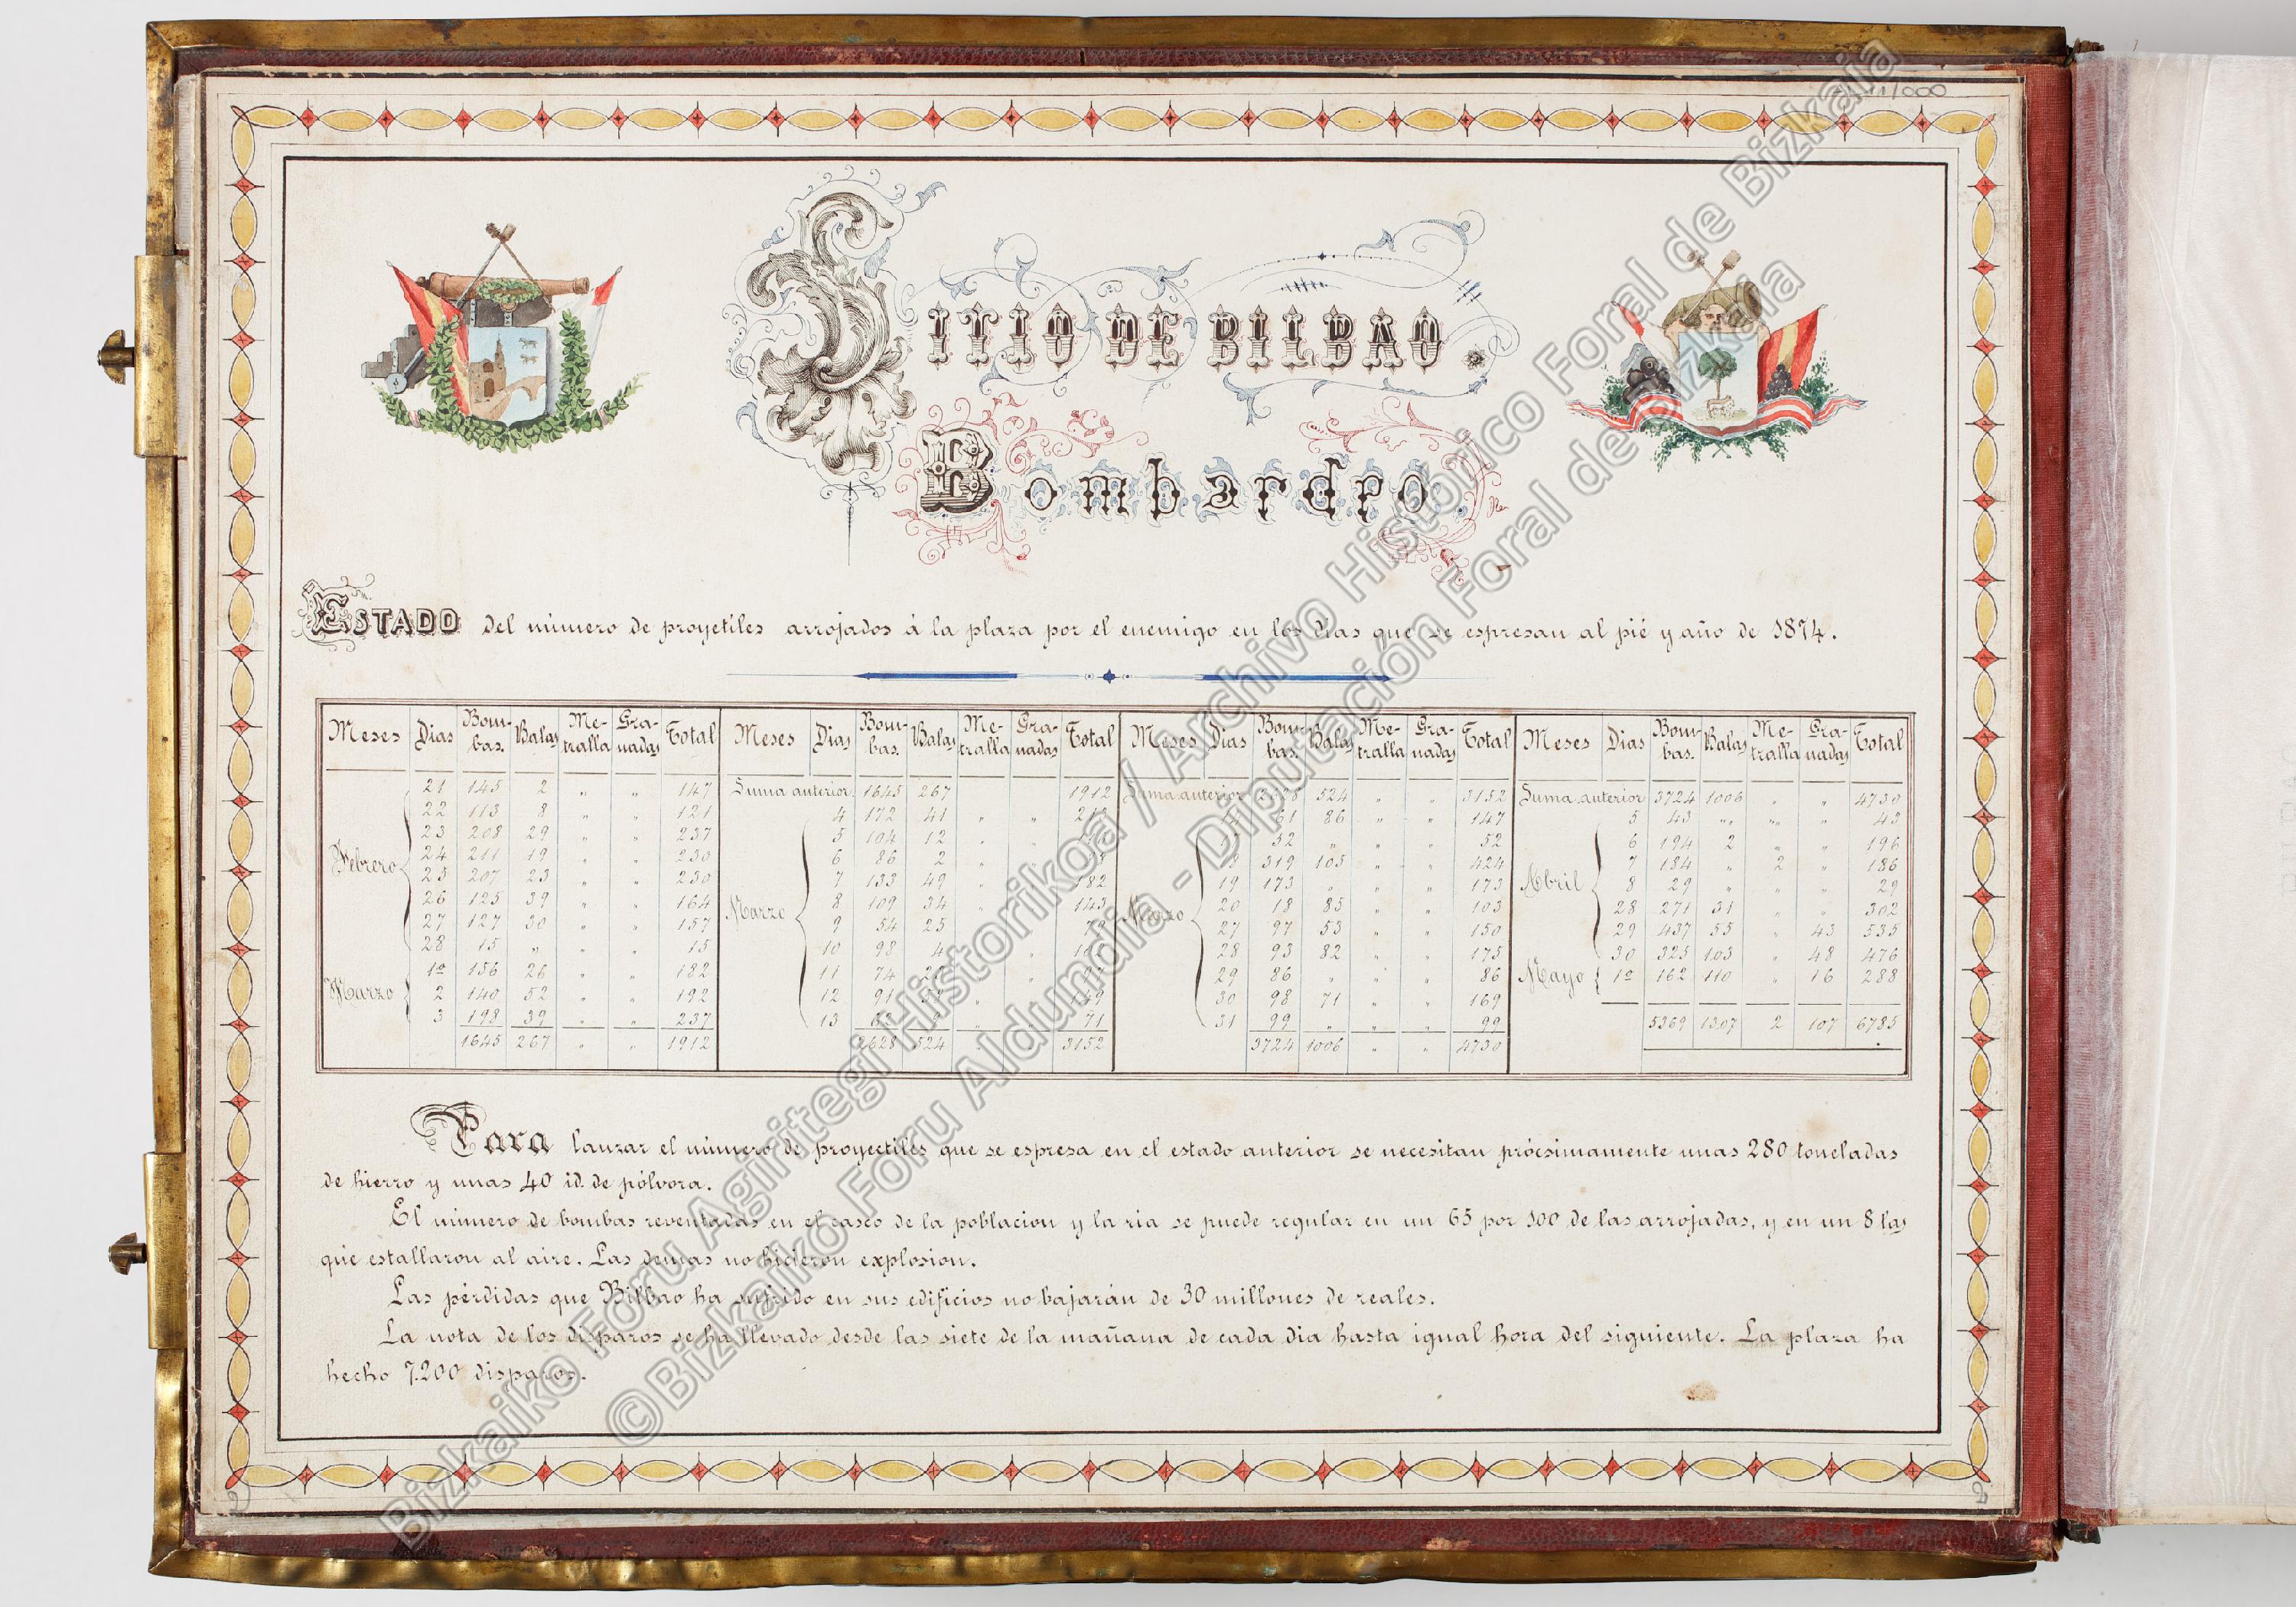 SITIO DE BILBAO.
Bombardeo.
ESTADO del número de proyetiles arrojados á la plaza por el enemigo en los dias que se espresan al pié y año de 1874.
Meses Dias Bom-bas. Balas Me-tralla Gra-nadas Total
Febrero
21 145 2 " " 147
22 113 8 " " 121
23 208 29 " " 237
24 211 19 " " 230
25 207 23 " " 230
26 125 39 " " 164
27 127 30 " " 157
28 15 " " " 15
Marzo
1º 156 26 " " 182
2 140 52 " " 192
3 198 39 " " 237
1645 267 " " 1912
Meses Dias Bom-bas. Balas Me-tralla Gra-nadas Total
Suma anterior 1645 267 1912
Marzo
4 172 41 " "
5 104 12 " "
6 86 2 "
7 133 49 " 182
8 109 34 " 143
9 54 25 79
10 98
11 74
12 91 149
13 71
2628 524 3152
Meses Dias Bom-bas. Balas Me-tralla Gra-nadas Total
Suma anterior 2628 524 " " 3152
Marzo
61 86 " " 147
52 " " " 52
319 105 " " 424
19 173 " " " 173
20 18 85 " " 103
27 97 53 " " 150
28 93 82 " " 175
29 86 " " " 86
30 98 71 " " 169
31 99 " " " 99
3724 1006 " " 4730
Meses Dias Bom-bas. Balas Me-tralla Gra-nadas Total
Suma anterior 3724 1006 " " 4730
Abril
5 43 " " " 43
6 194 2 " " 196
7 184 " 2 " 186
8 29 " " " 29
28 271 31 " " 302
29 437 55 " 43 535
30 325 103 " 48 476
Mayo
1º 162 110 " 16 288
5369 1307 2 107 6785
Para lanzar el número de proyectiles que se espresa en el estado anterior se necesitan prócsimamente unas 280 toneladas
de hierro y unas 40 id. de pólvora.
El número de bombas reventadas en el casco de la poblacion y la ria se puede regular en un 65 por 100 de las arrojadas, y en un 8 las
que estallaron al aire. Las demas no hicieron explosion.
Las pérdidas que Bilbao ha sufrido en sus edificios no bajarán de 30 millones de reales.
La nota de los disparos se ha llevado desde las siete de la mañana de cada dia hasta igual hora del siguiente. La plaza ha
hecho 7.200 disparos.
Bizkaiko Foru Agiritegi Historikoa / Archivo Histórico Foral de Bizkaia
©Bizkaiko Foru Aldundia - Diputación Foral de Bizkaia